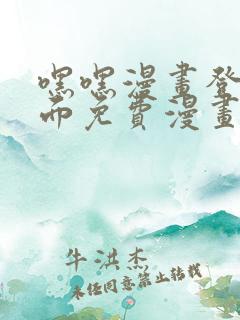 嘿嘿漫畫登
面免費漫畫
牛洪杰
未经同意禁止转载